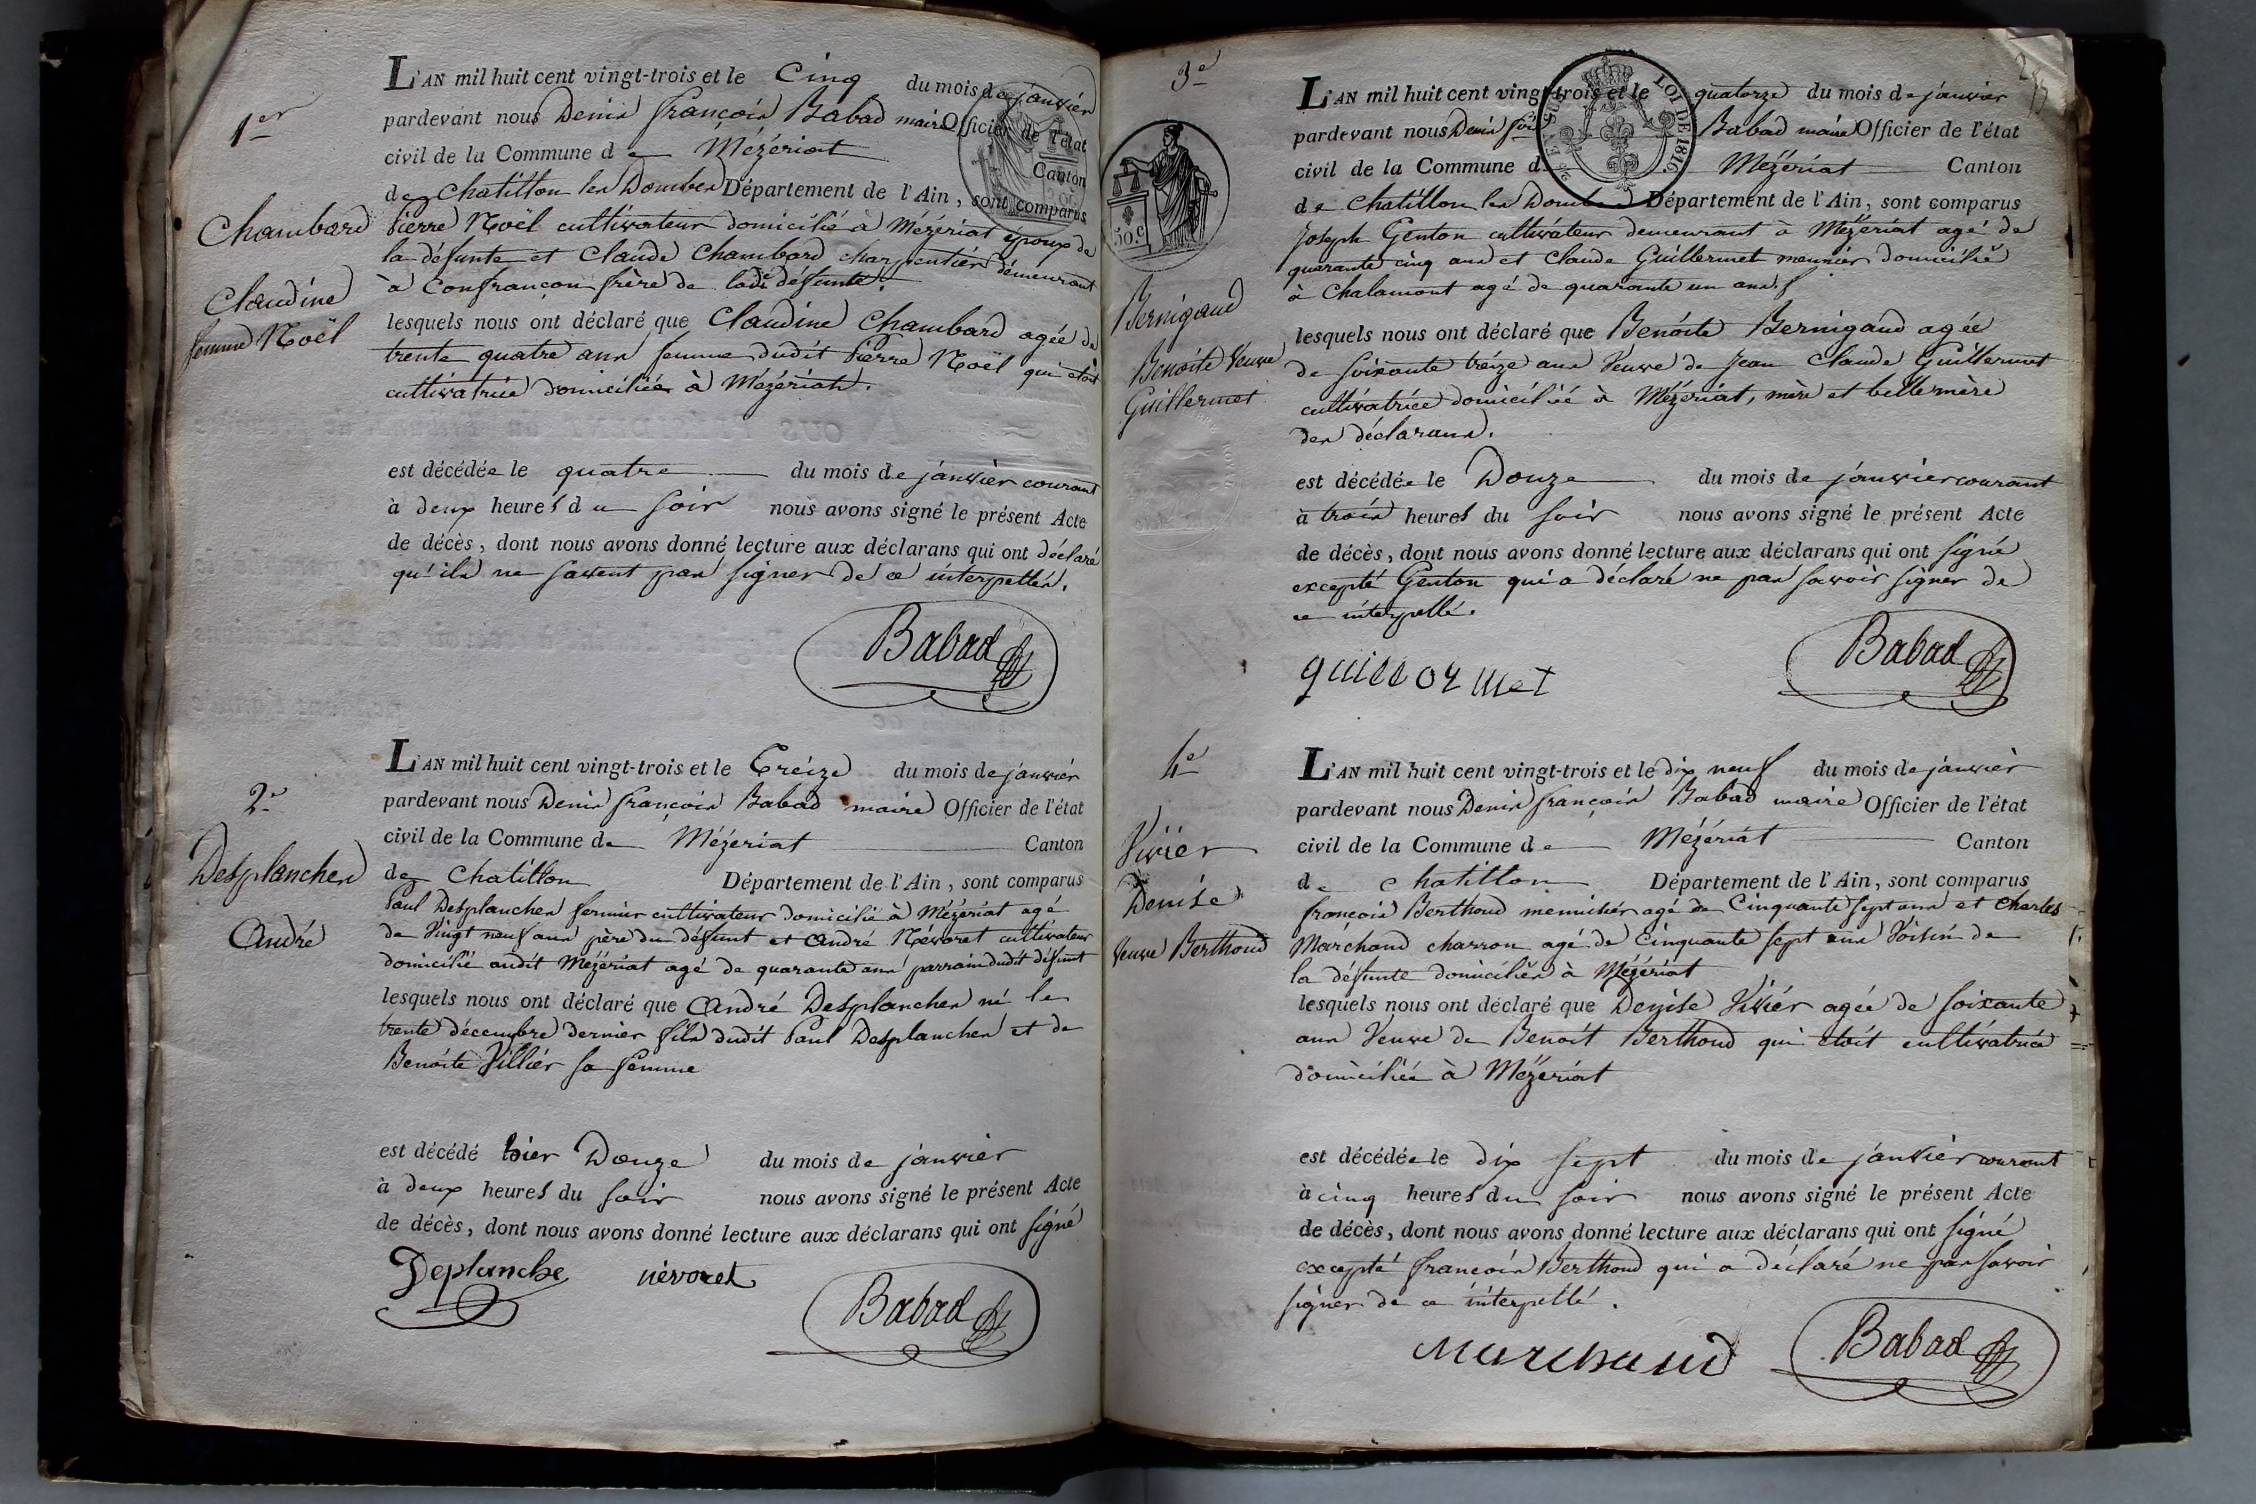 1er
Chambard
Claudine
femme Noël
L'AN mil huit cent vingt-trois et le Cinq du mois de janvier
pardevant nous Denis françois Babad maire Officier de l'état
civil de la Commune de Mézériat Canton
de Chatillon les Dombes Département de l'Ain, sont comparus
Pierre Noël cultivateur domicilié à Mézériat époux de
la défunte et Claude Chambard charpentier demeurant
à Confrançon frère de ladte défunte.
lesquels nous ont déclaré que Claudine Chambard agée de
trente quatre ans femme dudit Pierre Noël qui étoit
cultivatrice domiciliée à Mézériat.
est décédée le quatre du mois de janvier courant
à deux heures du soir nous avons signé le présent Acte
de décès, dont nous avons donné lecture aux déclarans qui ont déclaré
qu'ils ne savent pas signer de ce interpellés.
Babad
2e
Desplanches
André
L'AN mil huit cent vingt-trois et le Treize du mois de janvier
pardevant nous Denis françois Babad maire Officier de l'état
civil de la Commune de Mézériat Canton
de Chatillon Département de l'Ain, sont comparus
Paul Desplanches fermier cultivateur domicilié à Mézériat agé
de Vingt neuf ans père du défunt et André Névoret cultivateur
domicilié audit Mézériat agé de quarante ans parrain dudit défunt
lesquels nous ont déclaré que André Desplanches né le
trente décembre dernier fils dudit Paul Desplanches et de
Benoite Villier sa femme
est décédé hier Douze du mois de janvier
à deux heures du soir nous avons signé le présent Acte
de décès, dont nous avons donné lecture aux déclarans qui ont signé
Deplanche névoret
Babad
3e
50.c
Bernigaud
Benoite Veuve
Guillermet
LOI DE 1816.
L'AN mil huit cent vingt-trois et le quatorze du mois de janvier
pardevant nous Denis fois Babad maire Officier de l'état
civil de la Commune de Mézériat Canton
de Chatillon les Dombes Département de l'Ain, sont comparus
Joseph Genton cultivateur demeurant à Mézériat agé de
quarante cinq ans et Claude Guillermet meunier domicilié
à Chalamont agé de quarante un ans
lesquels nous ont déclaré que Benoite Bernigaud agée
de soixante treize ans Veuve de Jean Claude Guillermet
cultivatrice domiciliée à Mézériat, mère et bellemère
des déclarans.
est décédée le Douze du mois de janvier courant
à trois heures du soir nous avons signé le présent Acte
de décès, dont nous avons donné lecture aux déclarans qui ont signé
excepté Genton qui a déclaré ne pas savoir signer de
ce interpellé.
guillermet
Babad
4e
Vivier
Denise
Veuve Berthoud
L'AN mil huit cent vingt-trois et le dix neuf du mois de janvier
pardevant nous Denis françois Babad maire Officier de l'état
civil de la Commune de Mézériat Canton
de Chatillon Département de l'Ain, sont comparus
françois Berthoud menuisier agé de Cinquante sept ans et Charles
Marchand charron agé de Cinquante sept ans Voisin de
la défunte domiciliés à Mézériat
lesquels nous ont déclaré que Denise Vivier agée de soixante
ans Veuve de Benoit Berthoud qui étoit cultivatrice
domiciliée à Mézériat
est décédée le dix sept du mois de janvier courant
à cinq heures du soir nous avons signé le présent Acte
de décès, dont nous avons donné lecture aux déclarans qui ont signé
excepté françois Berthoud qui a déclaré ne pas savoir
signer de ce interpellé.
Marchand
Babad